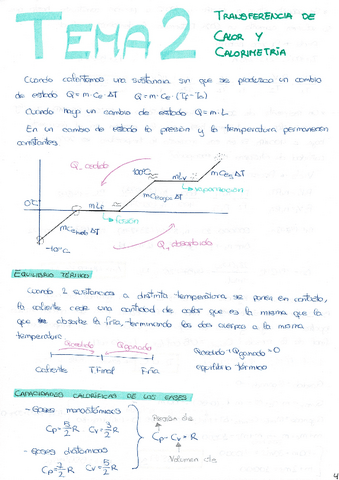 TEMA 2
TRANSFERENCIA DE
CALOR Y
CALORIMETRÍA
Cuando calentamos una sustancia sin que se produzca un cambio
de estado Q = m·Ce·ΔT Q = m·Ce·(Tf-To)
Cuando hay un cambio de estado Q = m·L
En un cambio de estado la presión y la temperatura permanecen
constantes
Q, cedido
100°C
mLv
mCe ΔT
vaporización
0°C
mLf
mCeagua ΔT
fusión
mCehielo ΔT
-10°C
Q, absorbido
EQUILIBRIO TÉRMICO
Cuando 2 sustancias a distinta temperatura se ponen en contacto,
la caliente cede una cantidad de calor que es la misma que la
que absorbe la fría, terminando los dos cuerpos a la misma
temperatura.
Qcedido Qganado
Qcedido + Qganado = 0
Caliente T.Final Fría
equilibrio térmico
CAPACIDADES CALORÍFICAS DE LOS GASES
- Gases monoatómicos
Cp = 5/2 R Cv = 3/2 R
Presión cte
Cp - Cv = R
- Gases diatómicos
Volumen cte
Cp = 7/2 R Cv = 5/2 R
4